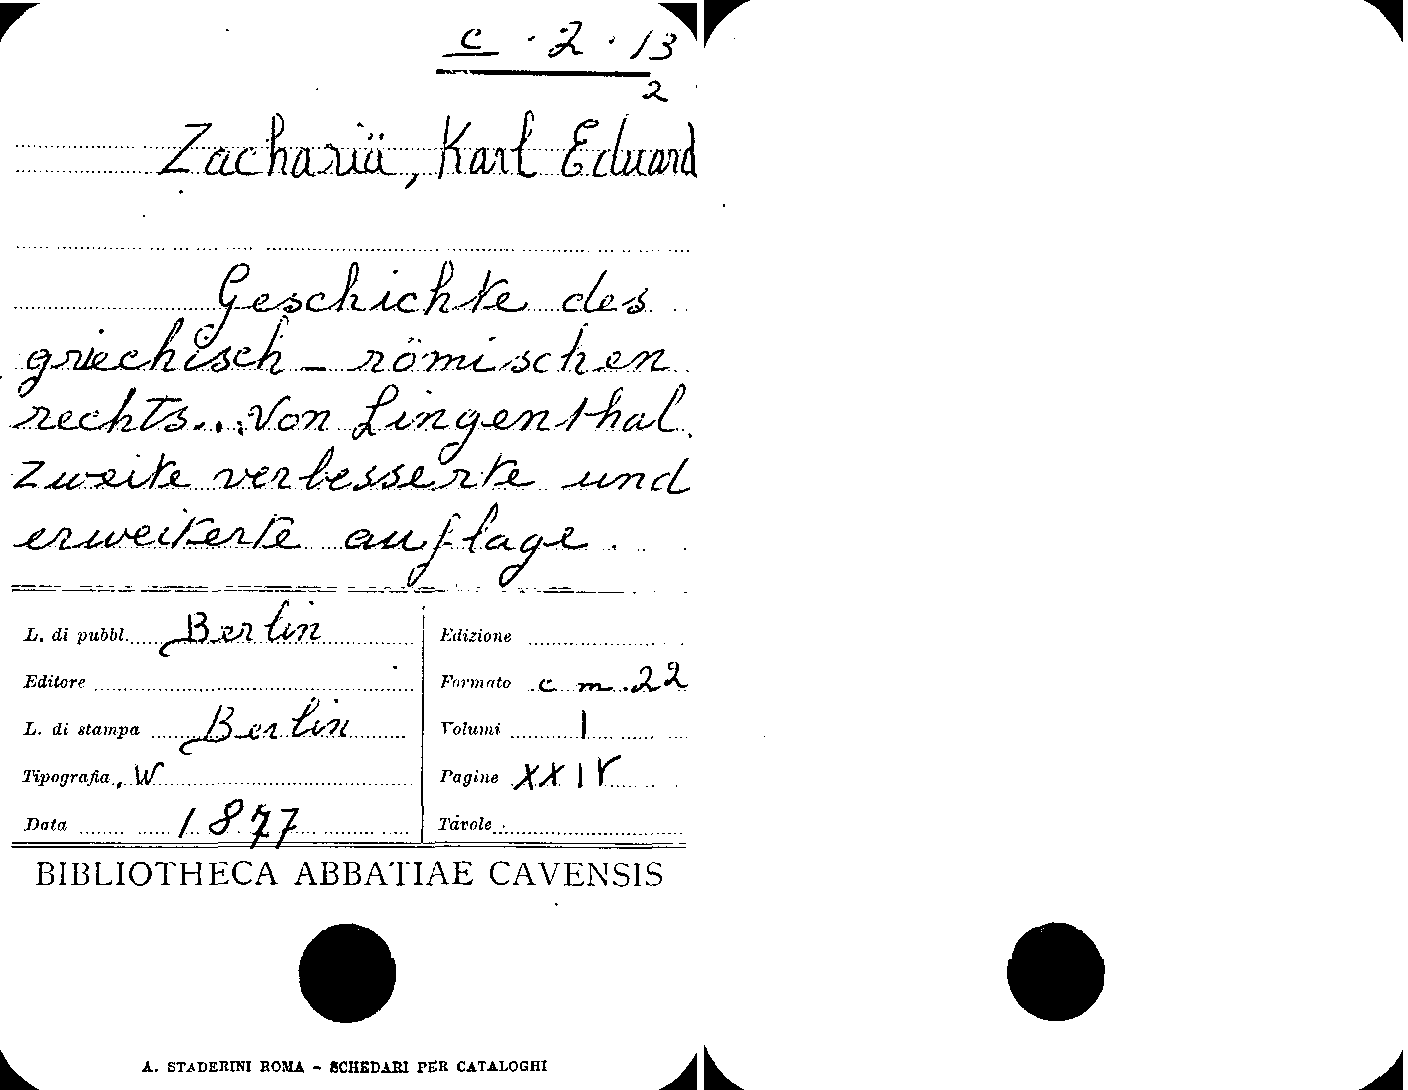 c . 2 . 13
2
Zachariä, Karl Eduard
Geschichte des
griechisch - römischen
rechts... Von Lingenthal.
Zweite verbesserte und
erweiterte auflage.
L. di pubbl. Berlin
Editore
L. di stampa Berlin
Tipografia W
Data 1877
Edizione
Formato cm. 22
Volumi 1
Pagine XXIV
Tavole
BIBLIOTHECA ABBATIAE CAVENSIS
A. STADERINI ROMA - SCHEDARI PER CATALOGHI